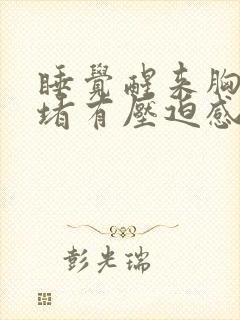 睡覺醒来胸
堵有壓迫感
彭光瑞